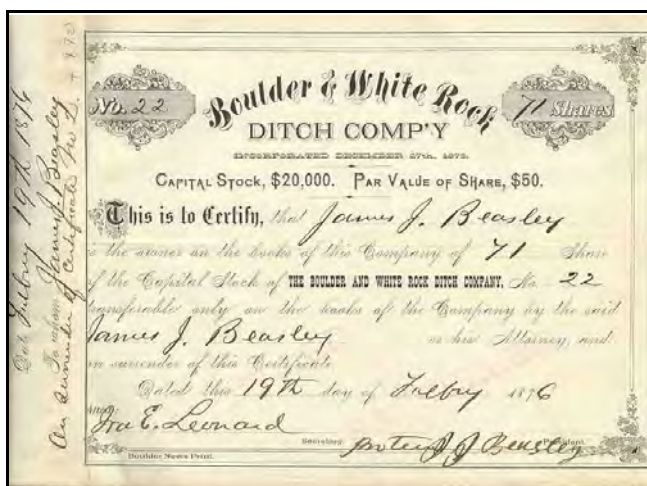 Date Febry 19th 1876
To whom James J. Beasley
On surrender of Certificate No
No. 22
Boulder & White Rock
71 Shares
DITCH COMP'Y
INCORPORATED DECEMBER 27th, 1873.
CAPITAL STOCK, $20,000. PAR VALUE OF SHARE, $50.
This is to Certify, that James J. Beasley
is the owner on the books of this Company of 71 Share
of the Capital Stock of THE BOULDER AND WHITE ROCK DITCH COMPANY, No. 22
transferable only on the books of the Company by the said
James J. Beasley or his Attorney, and
on surrender of this Certificate
Dated this 19th day of Febry 1876
Ira E. Leonard
Secretary. J J Beasley President.
Boulder News Print.